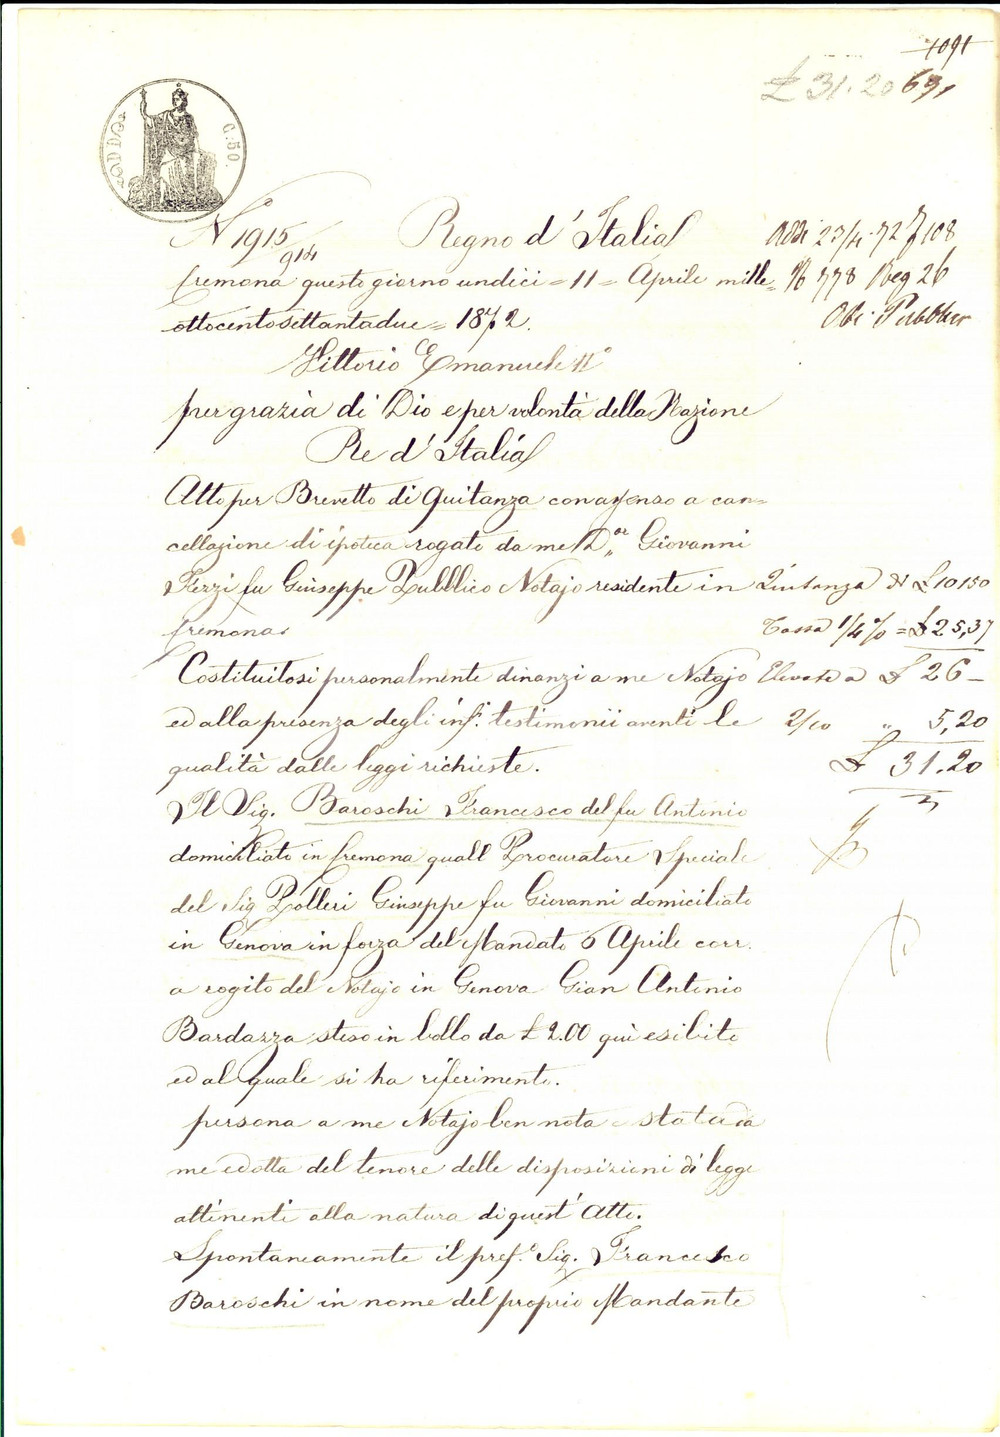 1091
£ 31.20 691
C. 50.
N° 1915
914
Regno d'Italia
Addi 23/4. 72 F 108
Cremona questo giorno undici = 11 = Aprile mille=
N 778 Reg 26
ottocentosettantadue = 1872.
Pubblici
Vittorio Emanuele II°
per grazia di Dio e per volontà della Nazione
Re d'Italia
Atto per Brevetto di Quitanza con assenso a can=
cellazione di ipoteca rogato da me D.or Giovanni
Fezzi fu Giuseppe Pubblico Notajo residente in
Quitanza di £ 10150
Cremona.
Tassa 1/4 % = £ 25,37
Costituitosi personalmente dinanzi a me Notajo
Elevata a £ 26 —
ed alla presenza degli inf.i testimonii aventi le
2/10 " 5,20
qualità dalle leggi richieste.
£ 31.20
Il Sig. Baroschi Francesco del fu Antonio
domiciliato in Cremona quall Procuratore Speciale
del Sig Polleri Giuseppe fu Giovanni domiciliato
in Genova in forza del Mandato 6 Aprile corr.
a rogito del Notajo in Genova Gian Antonio
Bardazza steso in bollo da £ 2.00 quì esibito
ed al quale si ha riferimento.
persona a me Notajo ben nota e stata da
me edotta del tenore delle disposizioni di legge
attinenti alla natura di quest'Atto.
Spontaneamente il pref.o Sig. Francesco
Baroschi in nome del proprio Mandante